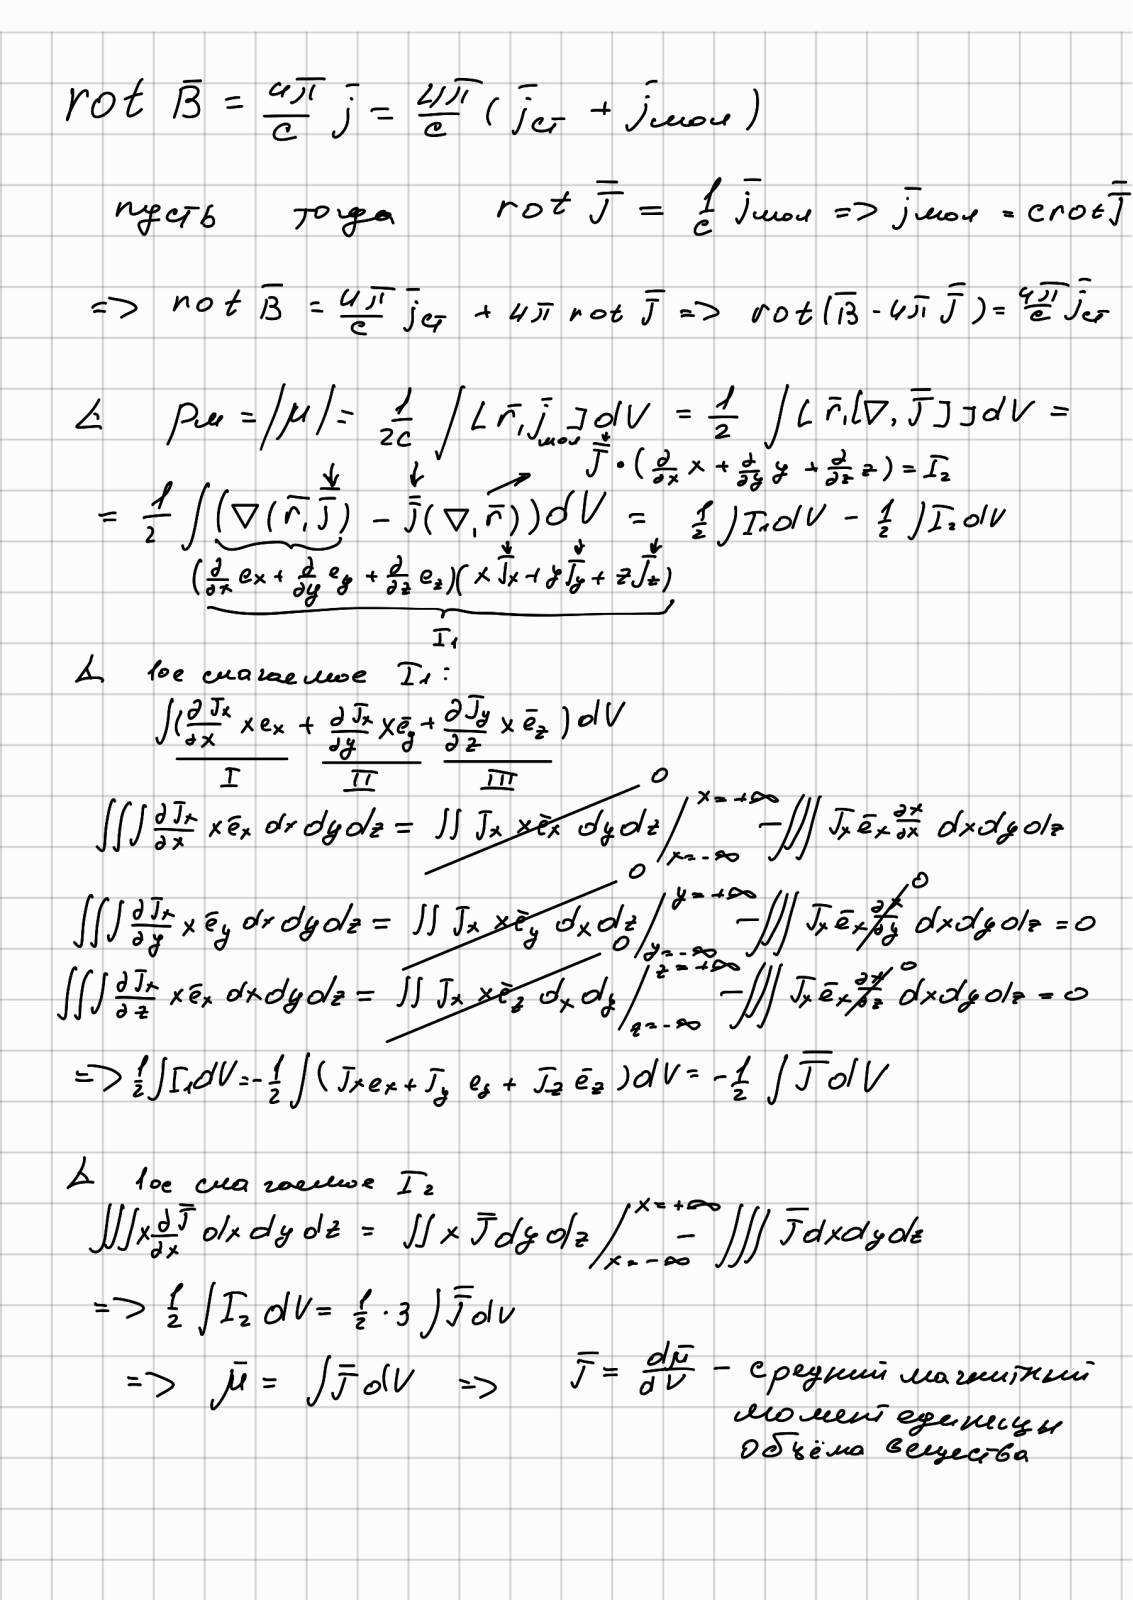 rot B̄ = 4π/c j̄ = 4π/c ( j̄ст + j̄мол )
пусть тогда rot J̄ = 1/c j̄мол => j̄мол = c rot J̄
=> rot B̄ = 4π/c j̄ст + 4π rot J̄ => rot(B̄ - 4π J̄ ) = 4π/c j̄ст
∠ pм = |μ| = 1/2c ∫ [ r̄, j̄мол ] dV = 1/2 ∫ [ r̄, [∇, J̄ ] ] dV =
J̄ · ( ∂/∂x x + ∂/∂y y + ∂/∂z z ) = I₂
= 1/2 ∫ ( ∇ ( r̄, J̄ ) - J̄ (∇, r̄ ) ) dV = 1/2 ∫ I₁ dV - 1/2 ∫ I₂ dV
( ∂/∂x ex + ∂/∂y ey + ∂/∂z ez )( x J̄x + y J̄y + z J̄z )
I₁
∠ 1ое слагаемое I₁ :
∫( ∂J̄x/∂x x ex + ∂J̄x/∂y x ēy + ∂J̄y/∂z x ēz ) dV
I II III
∫∫∫ ∂J̄x/∂x x ēx dx dy dz = ∫∫ J̄x x ēx dy dz |x=-∞ x=+∞ 0 - ∫∫∫ J̄x ēx ∂x/∂x dx dy dz
∫∫∫ ∂J̄x/∂y x ēy dx dy dz = ∫∫ J̄x x ēy dx dz |y=-∞ y=+∞ 0 - ∫∫∫ J̄x ēx ∂x/∂y 0 dx dy dz = 0
∫∫∫ ∂J̄x/∂z x ēx dx dy dz = ∫∫ J̄x x ēz dx dy |z=-∞ z=+∞ 0 - ∫∫∫ J̄x ēx ∂x/∂z 0 dx dy dz = 0
=> 1/2 ∫ I₁ dV = - 1/2 ∫ ( J̄x ex + J̄y ey + J̄z ēz ) dV = - 1/2 ∫ J̄ dV
∠ 1ое слагаемое I₂
∫∫∫ x ∂J̄/∂x dx dy dz = ∫∫ x J̄ dy dz |x=-∞ x=+∞ - ∫∫∫ J̄ dx dy dz
=> 1/2 ∫ I₂ dV = 1/2 · 3 ∫ J̄ dV
=> μ̄ = ∫ J̄ dV => J̄ = dμ̄/dV - средний магнитный
момент единицы
объёма вещества